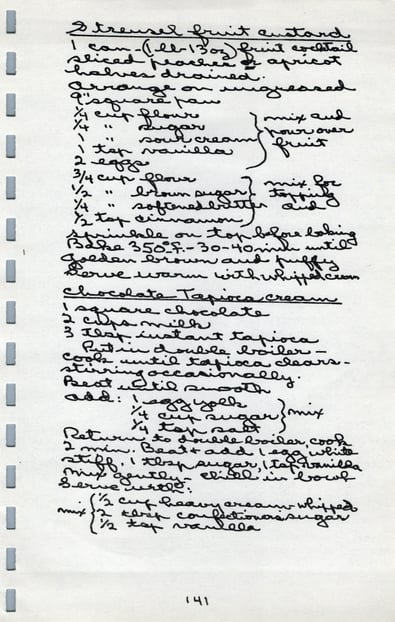 Streusel fruit custard
1 can-(1 lb 13 oz) fruit cocktail
sliced peaches & apricot
halves drained.
arrange on ungreased
9" square pan
1/4 cup flour
1/4 " sugar } mix and
1/4 " sour cream } pour over
1 tsp vanilla } fruit
2 eggs
3/4 cup flour
1/2 " brown sugar } mix for
1/4 " softened butter } topping
1/2 tsp cinnamon } and
sprinkle on top before baking
Bake 350° F. - 30-40 min until
golden brown and puffy
Serve warm with whipped cream
Chocolate Tapioca cream
1 square chocolate
2 cups milk
3 tbsp instant tapioca
Put in double boiler -
cook until tapioca clears -
stirring occasionally.
Beat until smooth
add: 1 egg yolk
1/4 cup sugar } mix
1/4 tsp salt
Return to double boiler, cook
2 min. Beat & add 1 egg white
stiff, 1 tbsp sugar, 1 tsp vanilla
mix gently - chill in bowl
Serve with:
mix { 1/2 cup heavy cream whipped
2 tbsp confectioners sugar
1/2 tsp vanilla
141